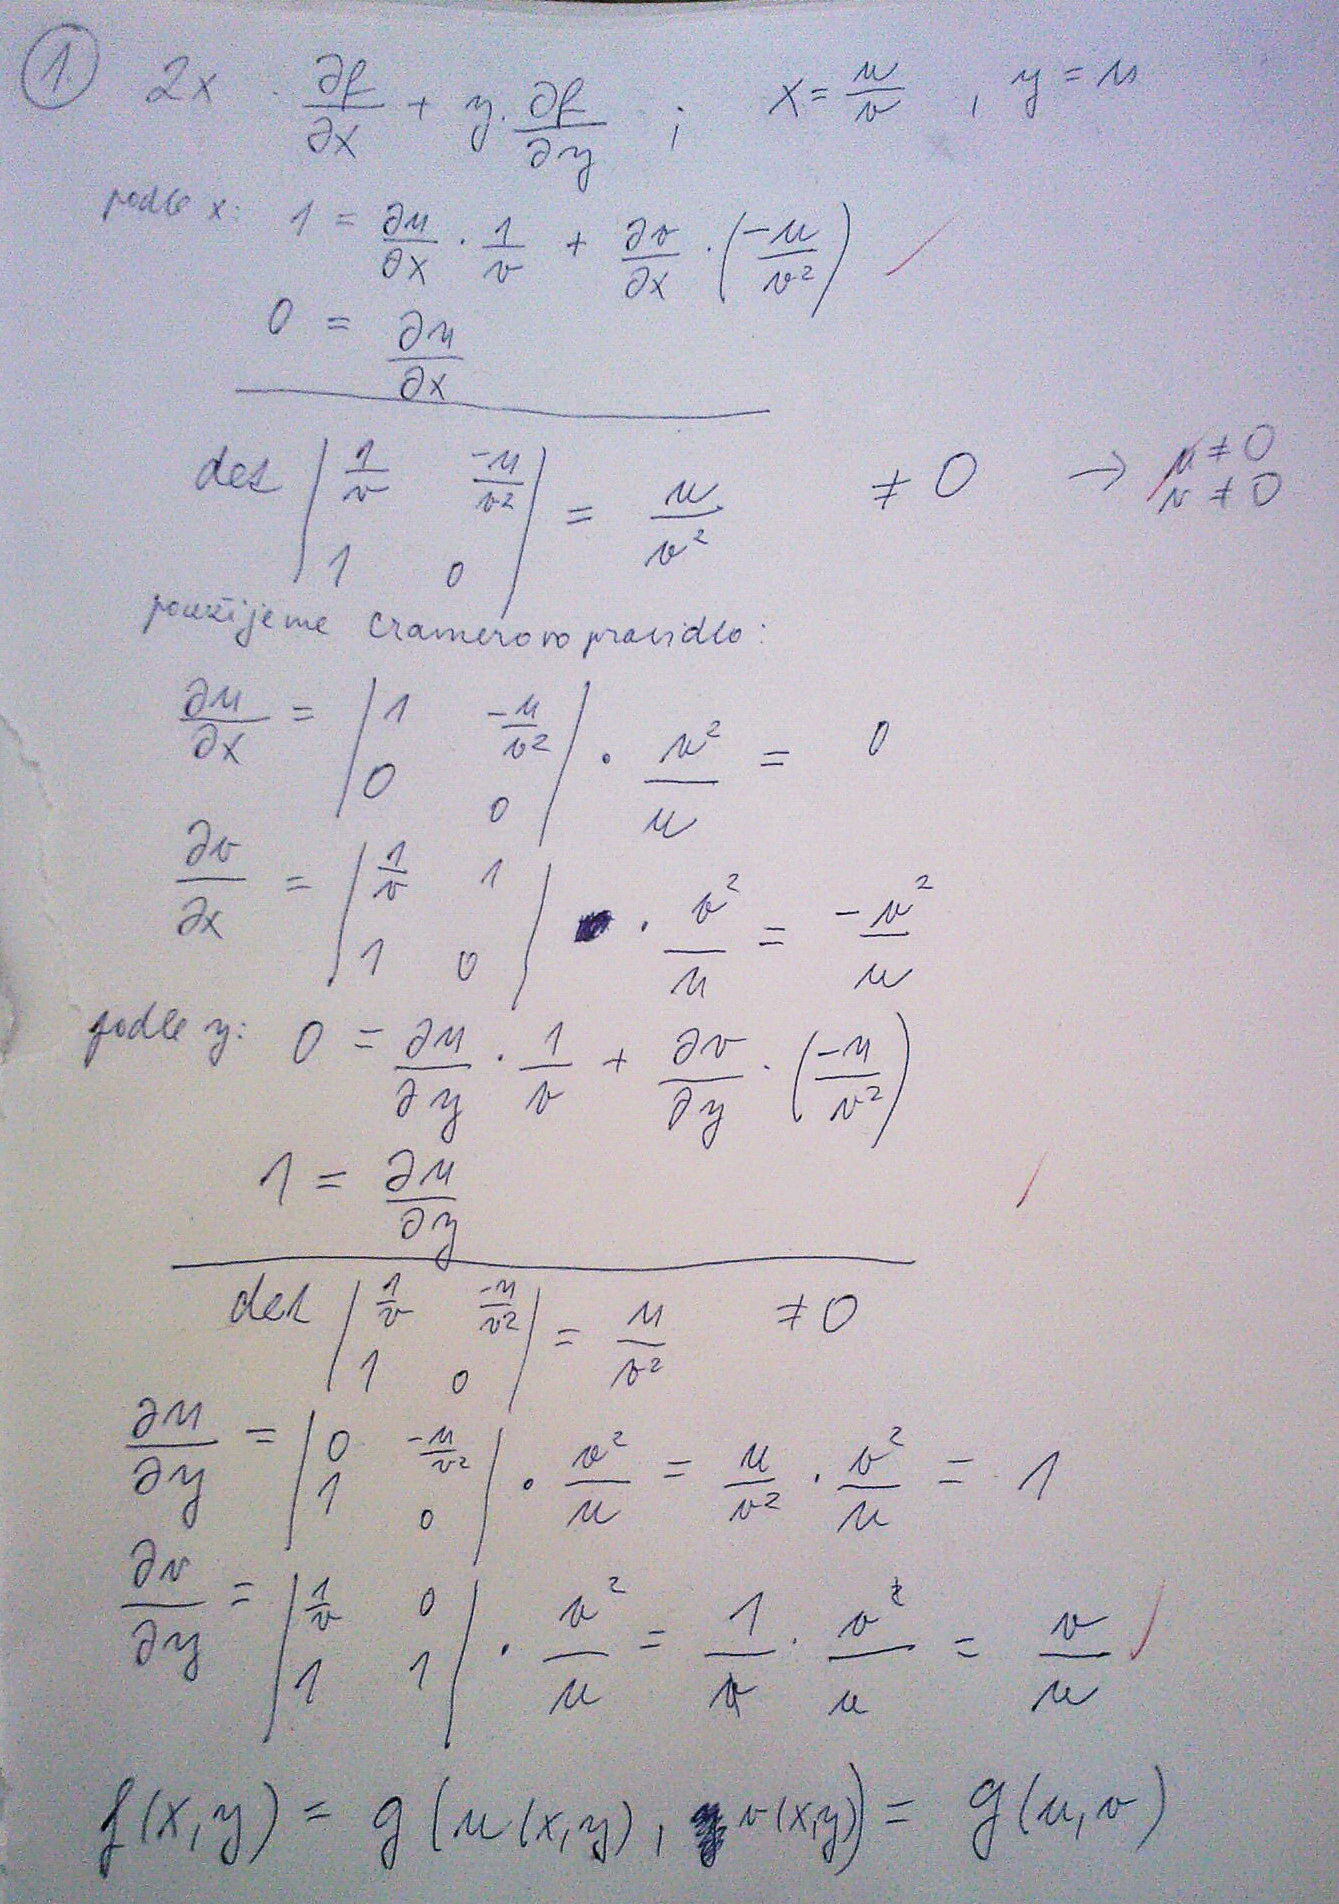 1. 2x · ∂f/∂x + y · ∂f/∂y ; x = u/v , y = u
podle x: 1 = ∂u/∂x · 1/v + ∂v/∂x · (-u/v²)
0 = ∂u/∂x
det | 1/v -u/v² ; 1 0 | = u/v² ≠ 0 → u ≠ 0
v ≠ 0
použijeme Cramerovo pravidlo:
∂u/∂x = | 1 -u/v² ; 0 0 | · v²/u = 0
∂v/∂x = | 1/v 1 ; 1 0 | · v²/u = -v²/u
podle y: 0 = ∂u/∂y · 1/v + ∂v/∂y · (-u/v²)
1 = ∂u/∂y
det | 1/v -u/v² ; 1 0 | = u/v² ≠ 0
∂u/∂y = | 0 -u/v² ; 1 0 | · v²/u = u/v² · v²/u = 1
∂v/∂y = | 1/v 0 ; 1 1 | · v²/u = 1/v · v²/u = v/u
f(x,y) = g(u(x,y), v(x,y)) = g(u,v)